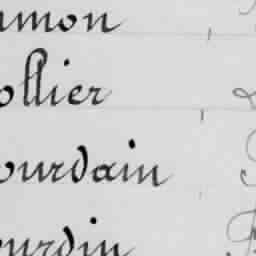 mon
ollier
ourdain
ourdin